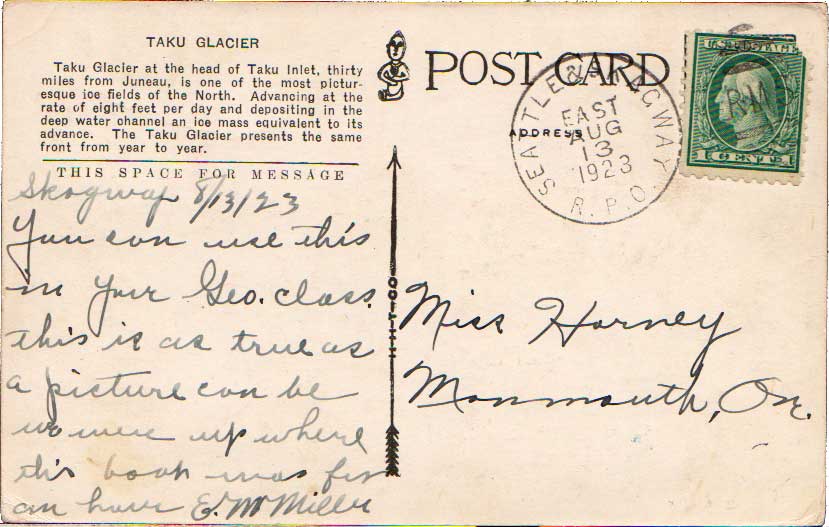 TAKU GLACIER
Taku Glacier at the head of Taku Inlet, thirty
miles from Juneau, is one of the most pictur-
esque ice fields of the North. Advancing at the
rate of eight feet per day and depositing in the
deep water channel an ice mass equivalent to its
advance. The Taku Glacier presents the same
front from year to year.
THIS SPACE FOR MESSAGE
Skagway 8/13/23
You can use this
in your Geo. class.
this is as true as
a picture can be
we were up where
this boat was for
an hour E. M Miller
H-H-T-CO
POST CARD
ADDRESS
SEATTLE & SKAGWAY
EAST
AUG
13
1923
R.P.O.
U.S. POSTAGE
R.M
1 CENT 1
Miss Harney
Monmouth, Or.